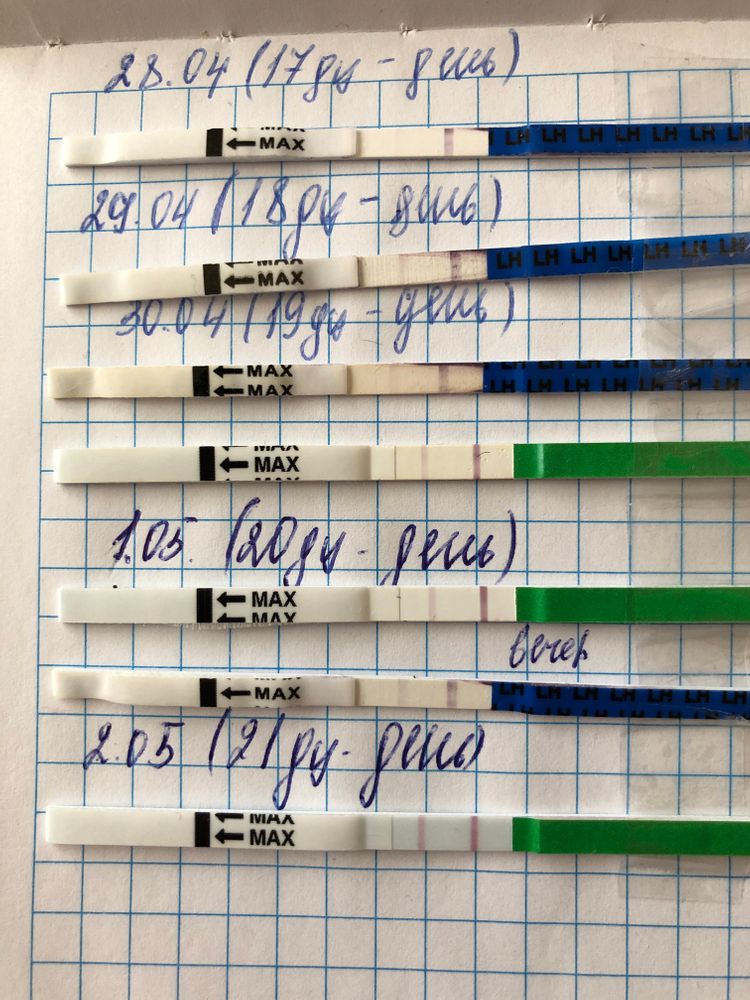 28.04 (17дц - день)
MAX
← MAX
LH LH LH LH LH LH LH
29.04 (18дц - день)
MAX
← MAX
LH LH LH LH LH LH LH
30.04 (19дц - день)
← MAX
← MAX
LH LH LH LH LH LH
LH LH LH LH LH LH LH
MAX
← MAX
1.05. (20дц - день)
← MAX
← MAX
вечер
← MAX
LH LH LH LH LH LH LH
LH LH LH LH LH LH
2.05 (21дц - день)
← MAX
← MAX